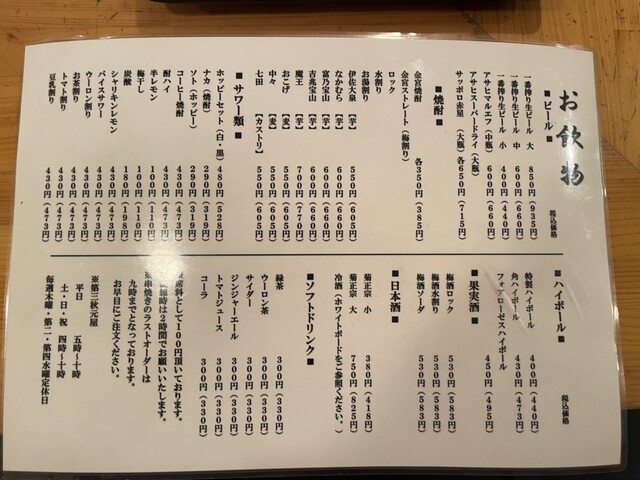 お飲物
税込価格
■ビール■
一番搾り生ビール 大 850円(935円)
一番搾り生ビール 中 600円(660円)
一番搾り生ビール 小 400円(440円)
アサヒマルエフ(中瓶) 600円(660円)
アサヒスーパードライ(大瓶)
サッポロ赤星 (大瓶) 各650円(715円)
■焼酎■
金宮焼酎 各350円(385円)
金宮ストレート(梅割り)
ロック
水割り
お湯割り
伊佐大泉 【芋】 550円(605円)
なかむら 【芋】 600円(660円)
富乃宝山 【芋】 600円(660円)
吉兆宝山 【芋】 600円(660円)
魔王 【芋】 700円(770円)
おこげ 【麦】 550円(605円)
中々 【麦】 550円(605円)
七田 【カストリ】 550円(605円)
■サワー類■
ホッピーセット(白・黒) 480円(528円)
ナカ(焼酎) 290円(319円)
ソト(ホッピー) 290円(319円)
コーヒー焼酎 430円(473円)
酎ハイ 430円(473円)
半レモン 100円(110円)
梅干し 100円(110円)
炭酸 180円(198円)
シャリキンレモン 480円
バイスサワー 430円(473円)
ウーロン割り 430円(473円)
お茶割り 430円(473円)
トマト割り 430円(473円)
豆乳割り 430円(473円)
■ハイボール■
税込価格
特製ハイボール 400円(440円)
角ハイボール 430円(473円)
フォアローゼスハイボール
450円(495円)
■果実酒■
梅酒ロック 530円(583円)
梅酒水割り 530円(583円)
梅酒ソーダ 530円(583円)
■日本酒■
菊正宗 小 380円(418円)
菊正宗 大 750円(825円)
冷酒(ホワイトボードをご参照ください。)
■ソフトドリンク■
緑茶 300円(330円)
ウーロン茶 300円(330円)
サイダー 300円(330円)
ジンジャーエール 300円(330円)
トマトジュース 300円(330円)
コーラ 300円(330円)
席料として100円頂いております。
時は2時間でお願いいたします。
※串焼きのラストオーダーは
九時までとなっております。
お早目にご注文ください。
※第三秋元屋
平日 五時〜十時
土・日・祝 四時〜十時
毎週木曜・第二・第四水曜定休日